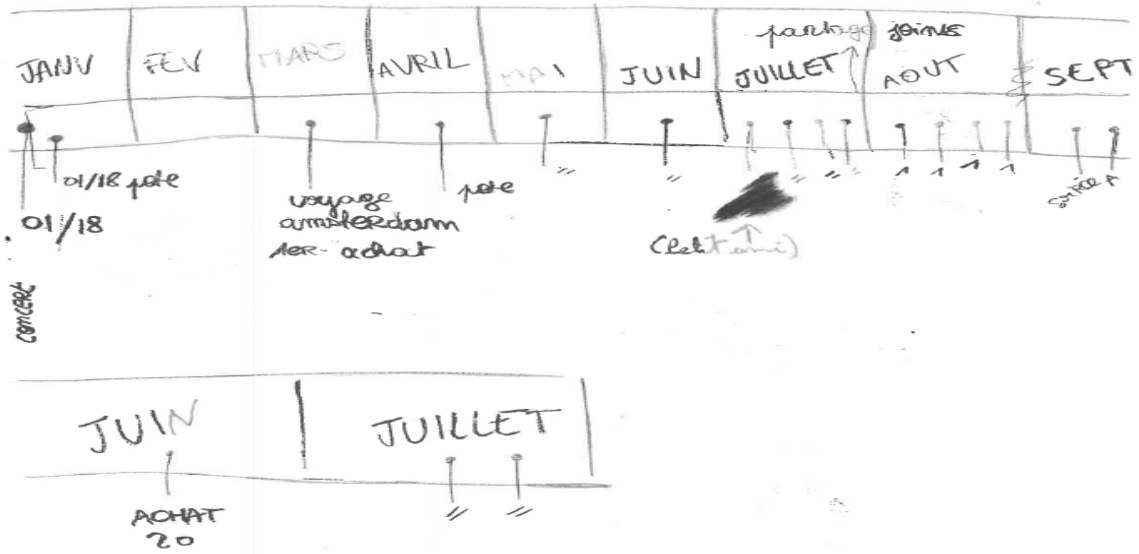 partage joints
JANV FEV MARS AVRIL MAI JUIN JUILLET AOUT SEPT
01/18 pote
01/18
concert
voyage
amsterdam
1ER achat
pote
"
"
" " " "
1 1 1 1
(Petit ami)
JUIN JUILLET
ACHAT
20
" "